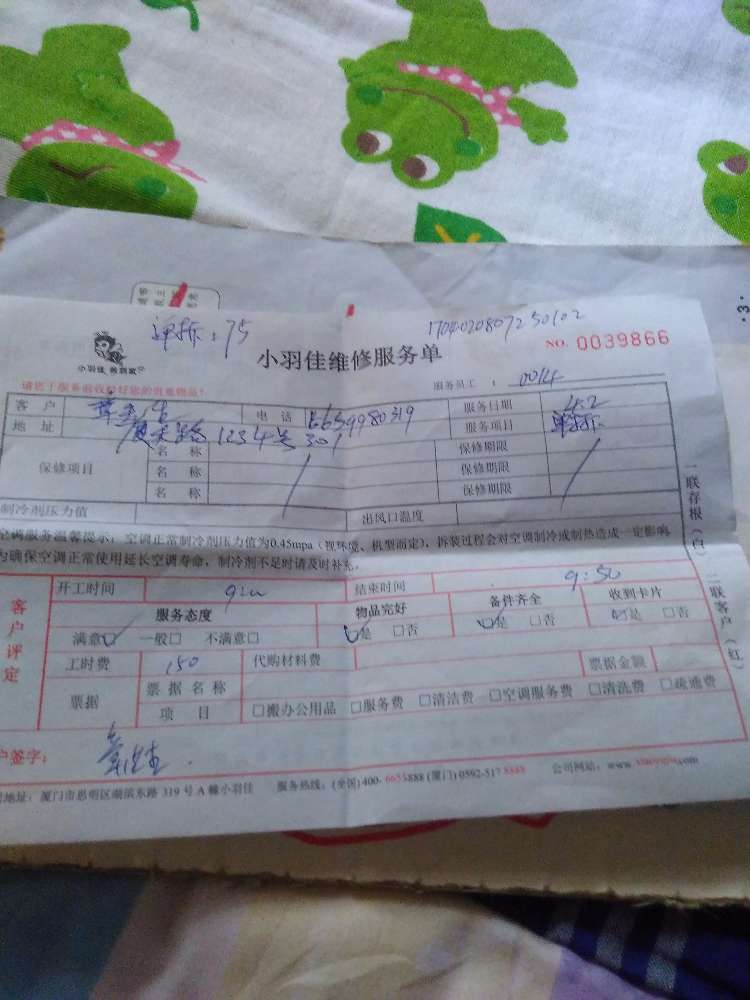 单拆:75
1704020807250102
小羽佳 养到家
小羽佳维修服务单
NO. 0039866
请您于服务前收好您的贵重物品!
服务员工 : 0014
客户 电话 服务日期 4.2
地址 厦禾路1234号301 服务项目 单拆
保修项目 名称 保修期限
名称 保修期限
名称 保修期限
制冷剂压力值 出风口温度
空调服务温馨提示:空调正常制冷剂压力值为0.45mpa(视环境、机型而定),拆装过程会对空调制冷或制热造成一定影响
为确保空调正常使用延长空调寿命,制冷剂不足时请及时补充。
一联存根(白) 二联客户(红)
客户评定
开工时间 结束时间 9:50
服务态度 物品完好 备件齐全 收到卡片
满意☑ 一般□ 不满意□ ☑是 □否 ☑是 □否 ☑是 □否
工时费 150 代购材料费 票据金额
票据 票据名称
项目 □搬办公用品 □服务费 □清洁费 □空调服务费 □清洗费 □疏通费
户签字:
地址:厦门市思明区湖滨东路 319 号 A 幢小羽佳 服务热线:(全国)400-6655888 (厦门) 0592-517 8888 公司网站:www.xiaoyujia.com